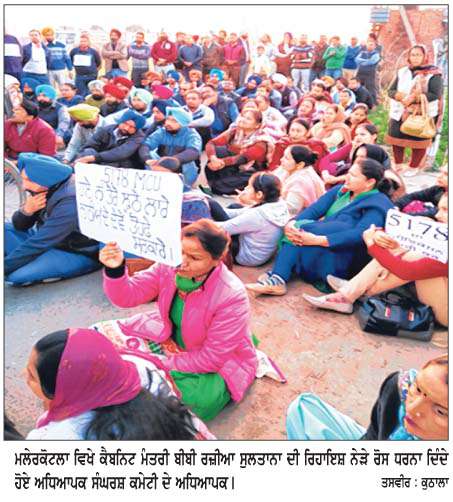 5178 MCU
ਲਾਰੇ
ਸਰਕਾਰੇ।
5178
ਮਲੇਰਕੋਟਲਾ ਵਿਖੇ ਕੈਬਨਿਟ ਮੰਤਰੀ ਬੀਬੀ ਰਜ਼ੀਆ ਸੁਲਤਾਨਾ ਦੀ ਰਿਹਾਇਸ਼ ਨੇੜੇ ਰੋਸ ਧਰਨਾ ਦਿੰਦੇ
ਹੋਏ ਅਧਿਆਪਕ ਸੰਘਰਸ਼ ਕਮੇਟੀ ਦੇ ਅਧਿਆਪਕ। ਤਸਵੀਰ : ਕੁਠਾਲਾ